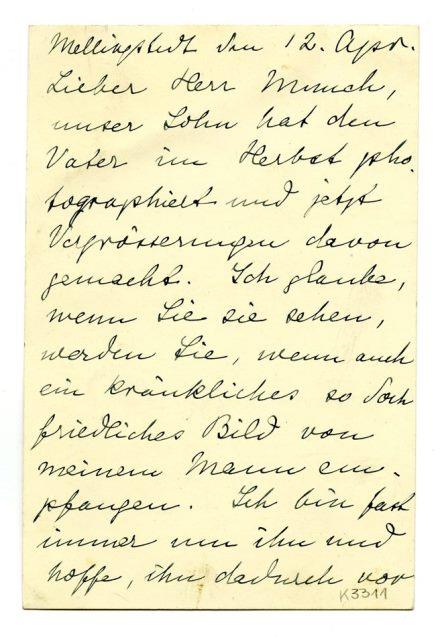 Mellingstedt den 12. Apr.
Lieber Herr Munch,
unser Sohn hat den
Vater im Herbst pho-
tographiert und jetzt
Vergrösserungen davon
gemacht. Ich glaube,
wenn Sie sie sehen,
werden Sie, wenn auch
ein kränkliches so doch
friedliches Bild von
meinem Mann em-
pfangen. Ich bin fast
immer um ihn und
hoffe, ihn dadurch vor
K3311